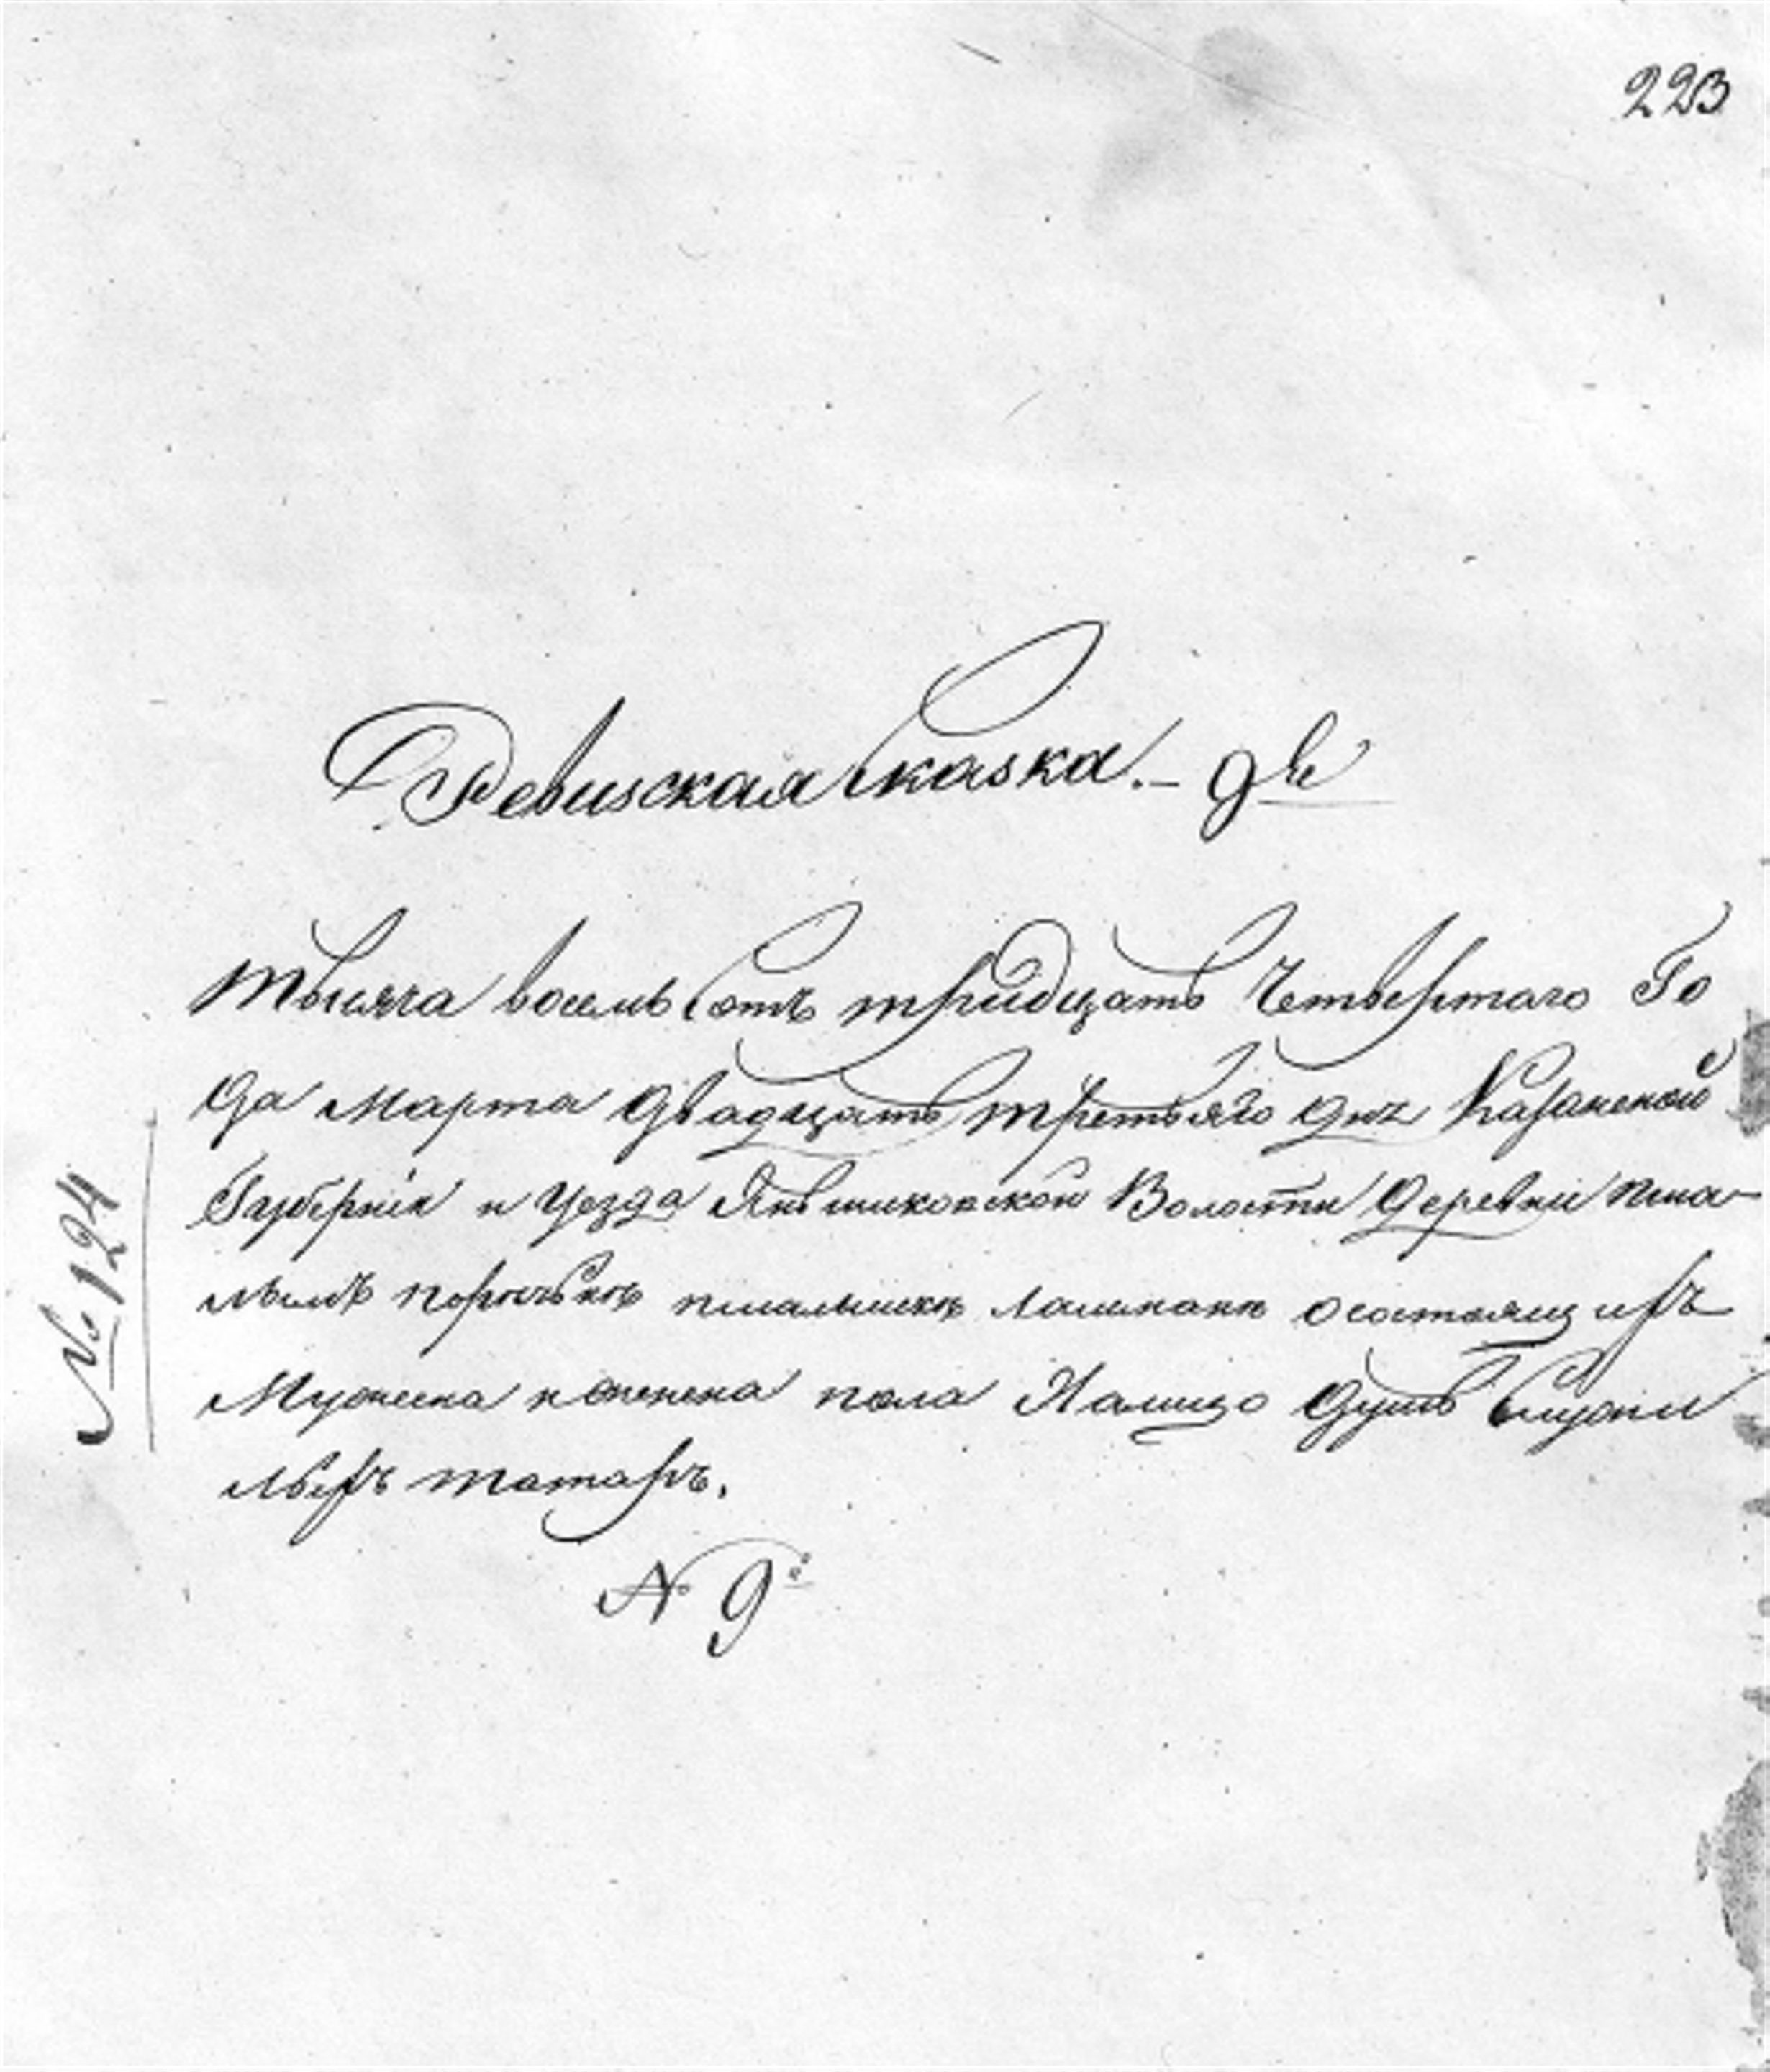 223
Ревизская сказка.–
Тысяча восемь сотъ тридцать четвертаго го
да марта двадцать третьяго дня Казанской
Губерніи и уезда Янышиковской Волости деревни
о состоящихъ
Мужеска и женска пола Налицо душъ служи
лыхъ татаръ.
№ 9:
№ 124